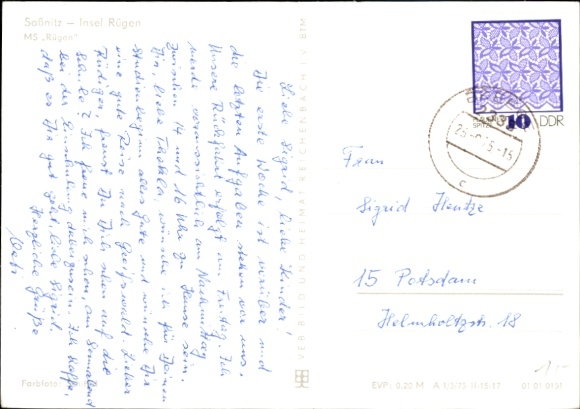 Saßnitz – Insel Rügen
MS „Rügen"
Liebe Sigrid, liebe Kinder!
Die erste Woche ist vorüber und
die letzten Aufgaben stehen vor uns.
Unsere Rückfahrt erfolgt am Freitag. Ich
werde voraussichtlich am Nachmittag
zwischen 14 und 16 Uhr zu Hause sein.
Dir, liebe Thekla, wünsche ich für Deinen
Studienbeginn alles Gute und wünsche Dir
eine gute Reise nach Greifswald. Lieber
Rüdiger, freust Du Dich schon auf die
Schule? Ich freue mich schon, am Sonnabend
bei der Einschulung dabeizusein. Ich hoffe,
daß es Dir gut geht, liebe Sigrid.
Herzliche Grüße
VEB BILD UND HEIMAT REICHENBACH I. V. BTM
PLAUENER
SPITZE
10 DDR
Frau
Sigrid Hentze
15 Potsdam
Helmholtzstr. 18
Farbfoto
EVP: 0,20 M A 1/3/75 II-15-17 01 01 0151
1,-